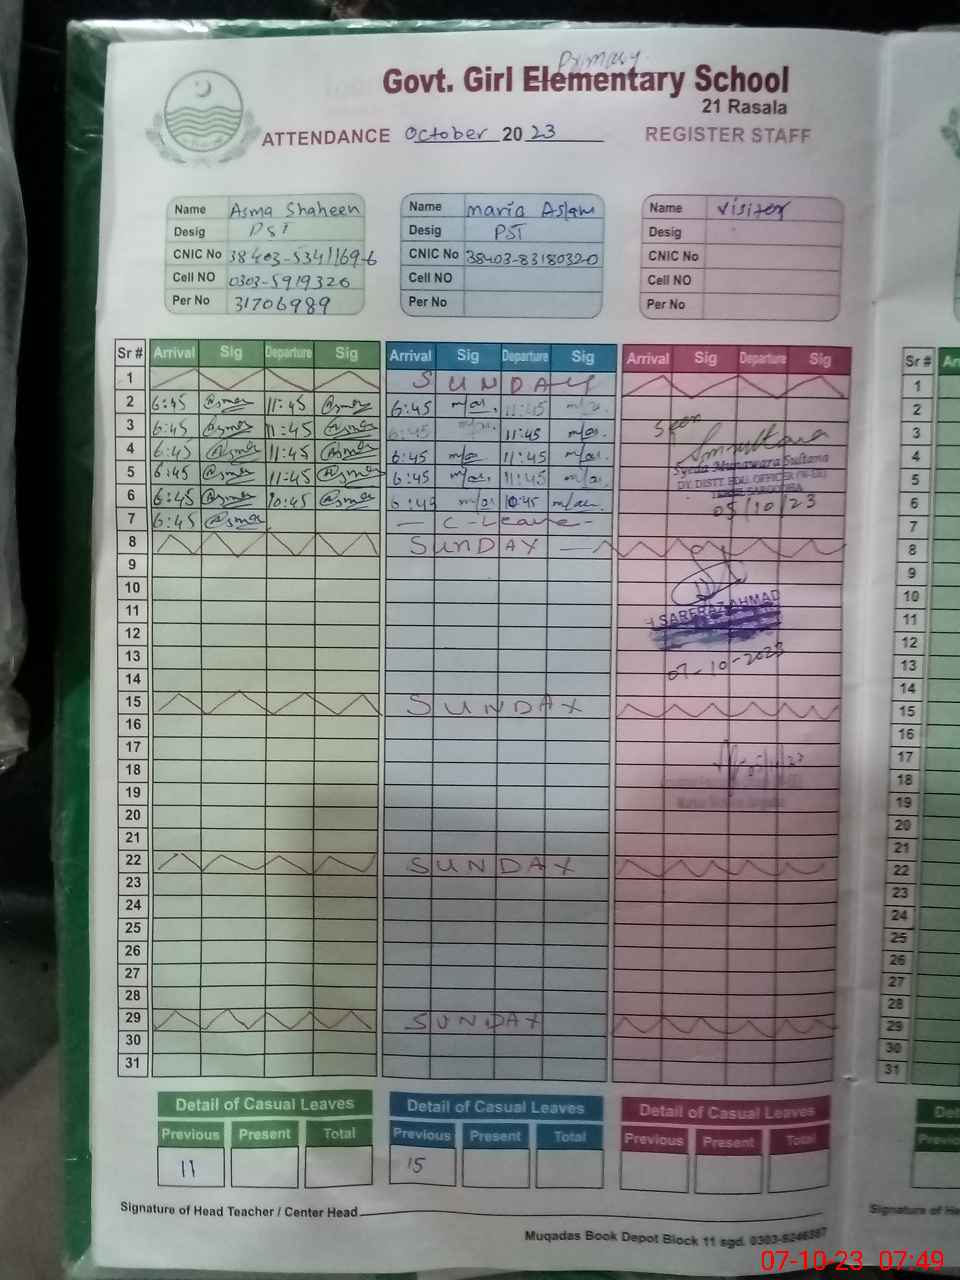 Primary
Govt. Girl Elementary School
21 Rasala
ATTENDANCE October 2023 REGISTER STAFF
Name Asma Shaheen Name maria Aslam Name Visiter
Desig PST Desig PST Desig
CNIC No 38403-5341169-6 CNIC No 38403-83180320 CNIC No
Cell NO 0303-5919326 Cell NO Cell NO
Per No 31706989 Per No Per No
Sr # Arrival Sig Departure Sig Arrival Sig Departure Sig Arrival Sig Departure Sig Sr #
1 SUNDAY 1
2 6:45 Asma 11:45 Asma 6:45 mar. 11:45 mar. 2
3 6:45 Asma 11:45 Asma 6:45 mar. 11:45 mar. Seen 3
4 6:45 Asma 11:45 Asma 6:45 mar. 11:45 mar. 4
Syeda Munawara Sultana
5 6:45 Asma 11:45 Asma 6:45 mar. 11:45 mar. DY. DISTT. EDU. OFFICER 5
6 6:45 Asma 10:45 Asma 6:45 mar 10:45 mar. 05/10/23 6
7 6:45 Asma - C-Leave- 7
8 SUNDAY 8
9 9
10 10
11 SARFRAZ AHMAD 11
12 12
13 07-10-2023 13
14 14
15 SUNDAY 15
16 16
17 17
18 18
19 19
20 20
21 21
22 SUNDAY 22
23 23
24 24
25 25
26 26
27 27
28 28
29 SUNDAY 29
30 30
31 31
Detail of Casual Leaves Detail of Casual Leaves Detail of Casual Leaves
Previous Present Total Previous Present Total Previous Present Total
11 15
Signature of Head Teacher / Center Head
Muqadas Book Depot Block 11 sgd.
07-10-23 07:49